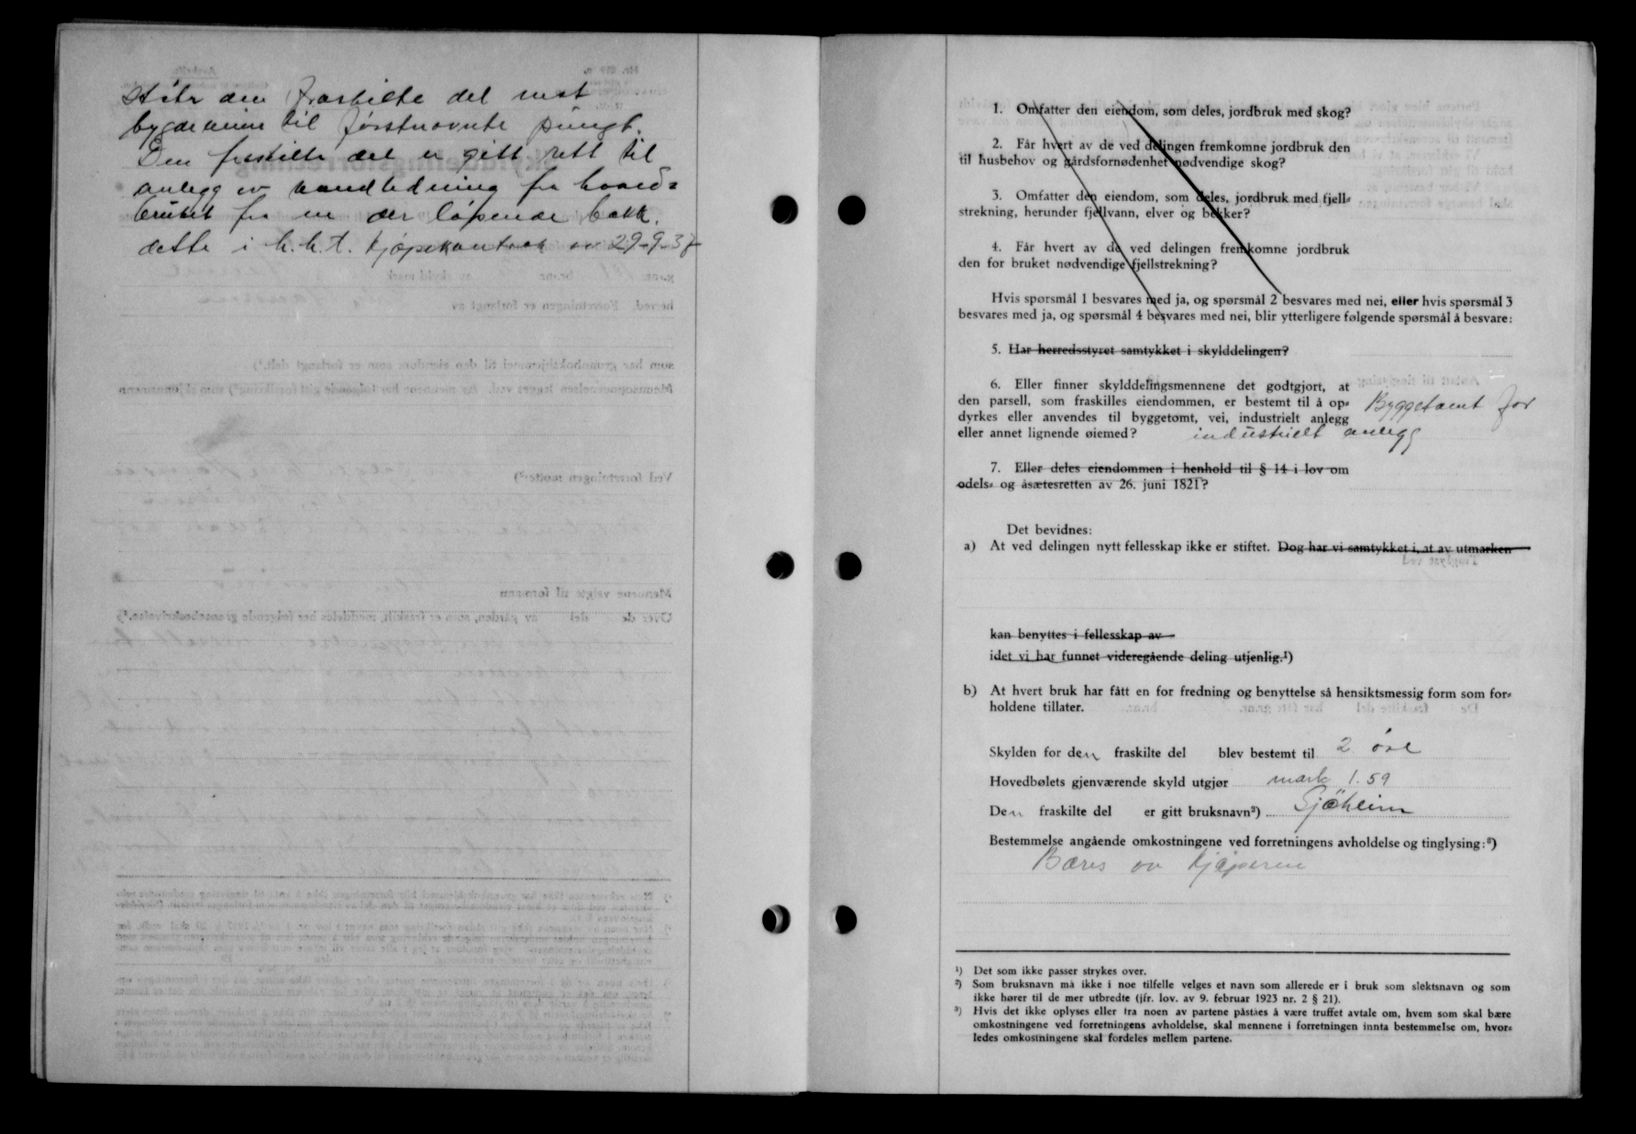 støtr den fraskilte del mot
bygdeveien til førstnevnte punkt.
Den fraskilte del er gitt rett til
anlegg av vandledning fra hoved=
bruket fra en der løpende bekk,
dette i h.h.t. kjøpekontrakt av 29-9-37
1. Omfatter den eiendom, som deles, jordbruk med skog?
2. Får hvert av de ved delingen fremkomne jordbruk den
til husbehov og gårdsfornødenhet nødvendige skog?
3. Omfatter den eiendom, som deles, jordbruk med fjell=
strekning, herunder fjellvann, elver og bekker?
4. Får hvert av de ved delingen fremkomne jordbruk
den for bruket nødvendige fjellstrekning?
Hvis spørsmål 1 besvares med ja, og spørsmål 2 besvares med nei, eller hvis spørsmål 3
besvares med ja, og spørsmål 4 besvares med nei, blir ytterligere følgende spørsmål å besvare:
5. Har herredsstyret samtykket i skylddelingen?
6. Eller finner skylddelingsmennene det godtgjort, at
den parsell, som fraskilles eiendommen, er bestemt til å op= Byggetomt for
dyrkes eller anvendes til byggetomt, vei, industrielt anlegg
eller annet lignende øiemed? industrielt anlegg
7. Eller deles eiendommen i henhold til § 14 i lov om
odels= og åsætesretten av 26. juni 1821?
Det bevidnes:
a) At ved delingen nytt fellesskap ikke er stiftet. Dog har vi samtykket i, at av utmarken
kan benyttes i fellesskap av
idet vi har funnet videregående deling utjenlig.¹)
b) At hvert bruk har fått en for fredning og benyttelse så hensiktsmessig form som for=
holdene tillater.
Skylden for den fraskilte del blev bestemt til 2 øre
Hovedbølets gjenværende skyld utgjør mark 1.59
Den fraskilte del er gitt bruksnavn²) Sjøheim
Bestemmelse angående omkostningene ved forretningens avholdelse og tinglysing:³)
Bæres av kjøperen
¹) Det som ikke passer strykes over.
²) Som bruksnavn må ikke i noe tilfelle velges et navn som allerede er i bruk som slektsnavn og som
ikke hører til de mer utbredte (jfr. lov. av 9. februar 1923 nr. 2 § 21).
³) Hvis det ikke oplyses eller fra noen av partene påståes å være truffet avtale om, hvem som skal bære
omkostningene ved forretningens avholdelse, skal mennene i forretningen innta bestemmelse om, hvor=
ledes omkostningene skal fordeles mellem partene.